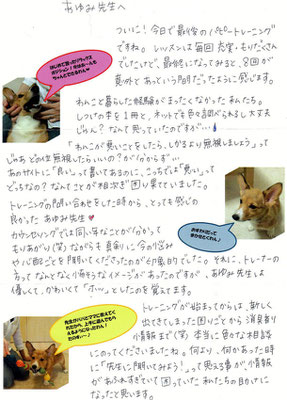 あゆみ先生へ
ついに！今日で最終のパピートレーニング
ですね。レッスンは毎回充実・もりだくさん
でしたけど、最終になってみると、8回が
意外とあっという間だったように感じます。
はじめて習ったリラックス
ポジション！今はおーんも
ちゃんとできるわん♥
わんこと暮らした経験がまったくなかった私たち。
しつけの本を1冊と、ネットで色々調べられるし大丈夫
じゃん？なんて思っていたのですが…
「わんこが悪いことをしたら、しかるより無視しましょう」って
じゃあどの位無視したらいいの？が分からず…
あのサイトに「良い」って書いてあるのに、こっちでは「悪い」って
どっちなの？なんてことが相次ぎ困り果てていました。
トレーニングの問い合わせをした時から、とっても感じの
良かったあゆみ先生♥
カウンセリングでは同い年なことが分かって
もりあがり（笑）ながらも真剣に今の悩み
や心配ごとを聞いてくださったのが印象的でした。それに、トレーナーの
方ってなんとなく怖そうなイメージがあったのですが、あゆみ先生は
優しくて、かわいくて「ホッ」としたのを覚えてます。
おすわりだって
まかせとくわん♪
トレーニングが始まってからは、新しく
出てきてしまった困りごとから消臭剤
情報まで（笑）本当に色々な相談
にのってくださいましたね。何より、何かあった時
に「先生に聞いてみよう！」って思える事が、情報
があふれすぎていて困っていた私たちの助けに
なったと思います。
先生がパパとママに教えてく
れたから、上手に遊んでもら
えるようになったわん！
たのすぃ～♪